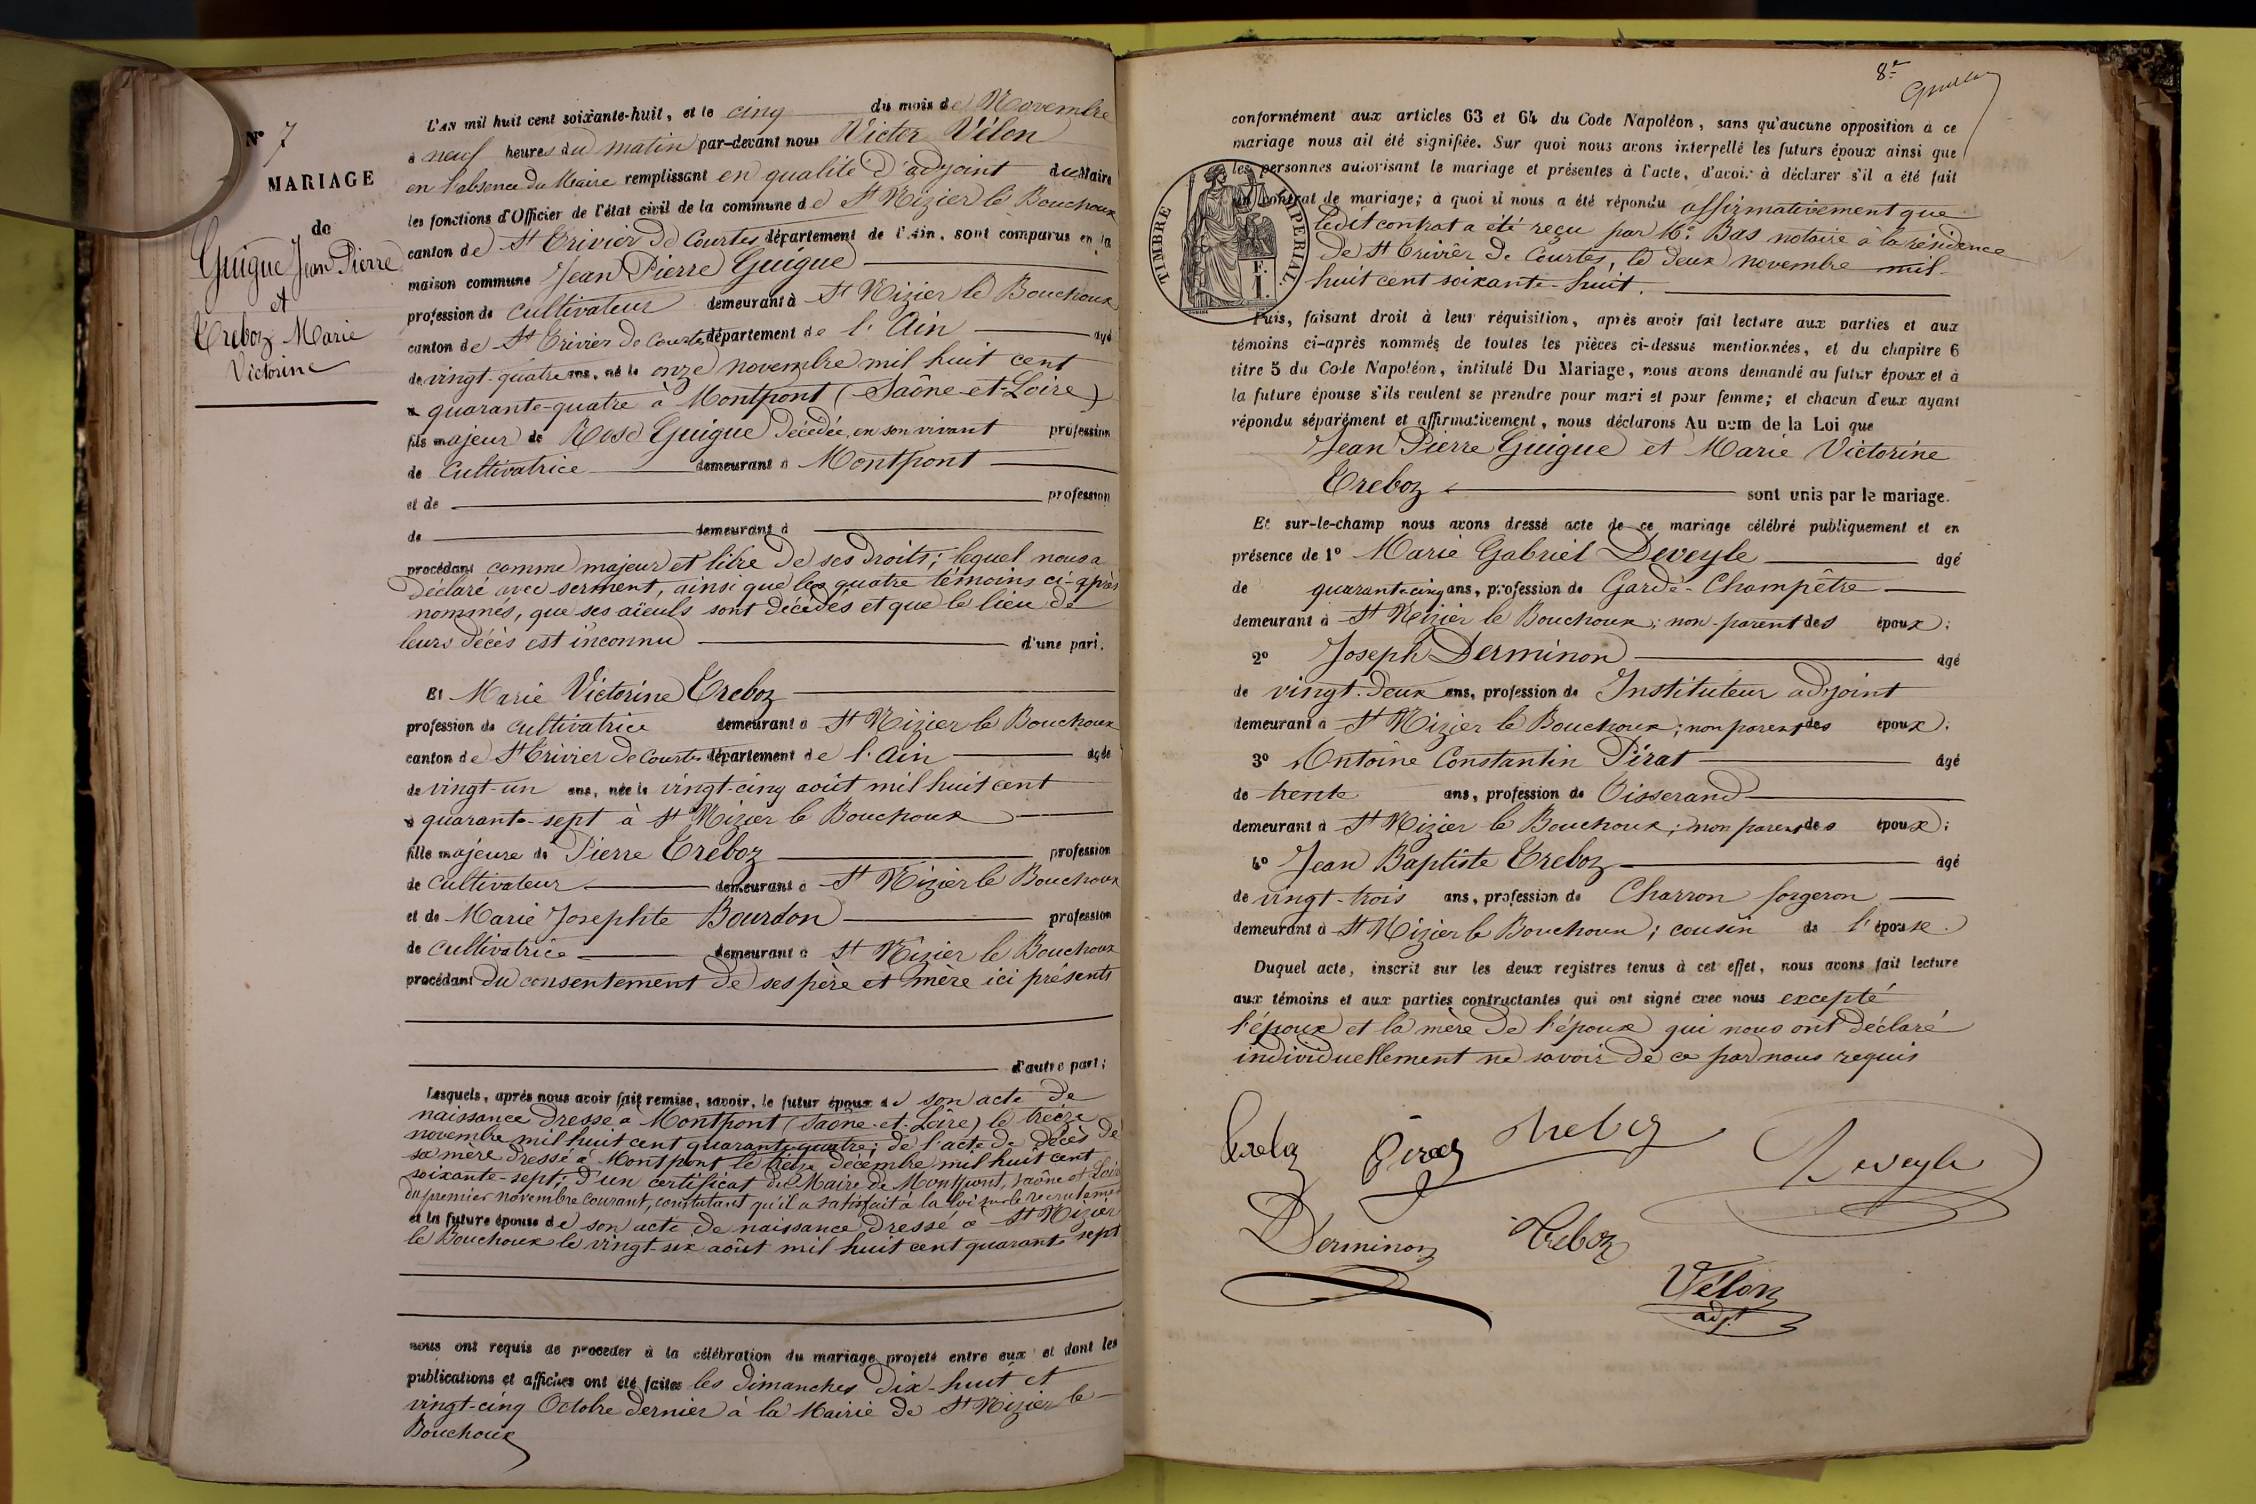 N° 7
MARIAGE
de
Guigue Jean Pierre
et
Treboz Marie
Victorine
L'AN mil huit cent soixante-huit, et le cinq du mois de Novembre
à neuf heures du matin par-devant nous Victor Vélon
en l'absence du Maire remplissant en qualité d'adjoint du Maire
les fonctions d'Officier de l'état civil de la commune de St Nizier le Bouchoux
canton de St Trivier de Courtes département de l'Ain, sont comparus en la
maison commune Jean Pierre Guigue
profession de cultivateur demeurant à St Nizier le Bouchoux
canton de St Trivier de Courtes département de l'Ain âgé
de vingt-quatre ans, né le onze novembre mil huit cent
quarante-quatre à Montpont (Saône-et-Loire)
fils majeur de Rose Guigue décédée, en son vivant profession
de cultivatrice demeurant à Montpont
et de profession
de demeurant à
procédant comme majeur et libre de ses droits; lequel nous a
déclaré avec serment, ainsi que les quatre témoins ci-après
nommés, que ses aïeuls sont décédés et que le lieu de
leurs décès est inconnu d'une part.
Et Marie Victorine Treboz
profession de cultivatrice demeurant à St Nizier le Bouchoux
canton de St Trivier de Courtes département de l'Ain âgée
de vingt-un ans, née le vingt-cinq août mil huit cent
quarante-sept à St Nizier le Bouchoux
fille majeure de Pierre Treboz profession
de cultivateur demeurant à St Nizier le Bouchoux
et de Marie Josephte Bourdon profession
de cultivatrice demeurant à St Nizier le Bouchoux
procédant du consentement de ses père et mère ici présents
d'autre part;
Lesquels, après nous avoir fait remise, savoir, le futur époux de son acte de
naissance dressé à Montpont (Saône-et-Loire) le treize
novembre mil huit cent quarante-quatre; de l'acte de décès de
sa mère dressé à Montpont le treize décembre mil huit cent
soixante-sept; d'un certificat du Maire de Montpont, Saône et Loire
du premier novembre courant, constatant qu'il a satisfait à la loi sur le recrutement
et la future épouse de son acte de naissance dressé à St Nizier
le Bouchoux le vingt-six août mil huit cent quarante sept
nous ont requis de procéder à la célébration du mariage projeté entre eux et dont les
publications et affiches ont été faites les dimanches dix-huit et
vingt-cinq Octobre dernier à la Mairie de St Nizier le
Bouchoux
8e
conformément aux articles 63 et 64 du Code Napoléon, sans qu'aucune opposition à ce
mariage nous ait été signifiée. Sur quoi nous avons interpellé les futurs époux ainsi que
les personnes autorisant le mariage et présentes à l'acte, d'avoir à déclarer s'il a été fait
un contrat de mariage; à quoi il nous a été répondu affirmativement que
ledit contrat a été reçu par Me Bas notaire à la résidence
de St Trivier de Courtes, le deux novembre mil
huit cent soixante-huit.
TIMBRE IMPERIAL
F.
I.
Puis, faisant droit à leur réquisition, après avoir fait lecture aux parties et aux
témoins ci-après nommés de toutes les pièces ci-dessus mentionnées, et du chapitre 6
titre 5 du Code Napoléon, intitulé Du Mariage, nous avons demandé au futur époux et à
la future épouse s'ils veulent se prendre pour mari et pour femme; et chacun d'eux ayant
répondu séparément et affirmativement, nous déclarons Au nom de la Loi que
Jean Pierre Guigue et Marie Victorine
Treboz sont unis par le mariage.
Et sur-le-champ nous avons dressé acte de ce mariage célébré publiquement et en
présence de 1° Marie Gabriel Deveyle âgé
de quarante-cinq ans, profession de Garde-Champêtre
demeurant à St Nizier le Bouchoux; non-parent des époux;
2° Joseph Derminon âgé
de vingt-deux ans, profession de Instituteur adjoint
demeurant à St Nizier le Bouchoux; non parent des époux;
3° Antoine Constantin Pirat âgé
de trente ans, profession de Tisserand
demeurant à St Nizier le Bouchoux; non parent des époux;
4° Jean Baptiste Treboz âgé
de vingt-trois ans, profession de Charron forgeron
demeurant à St Nizier le Bouchoux; cousin de l'épouse.
Duquel acte, inscrit sur les deux registres tenus à cet effet, nous avons fait lecture
aux témoins et aux parties contractantes qui ont signé avec nous excepté
l'époux et la mère de l'épouse qui nous ont déclaré
individuellement ne savoir de ce par nous requis
Treboz Pirat Treboz Deveyle
Derminon Treboz
Vélon
adjt